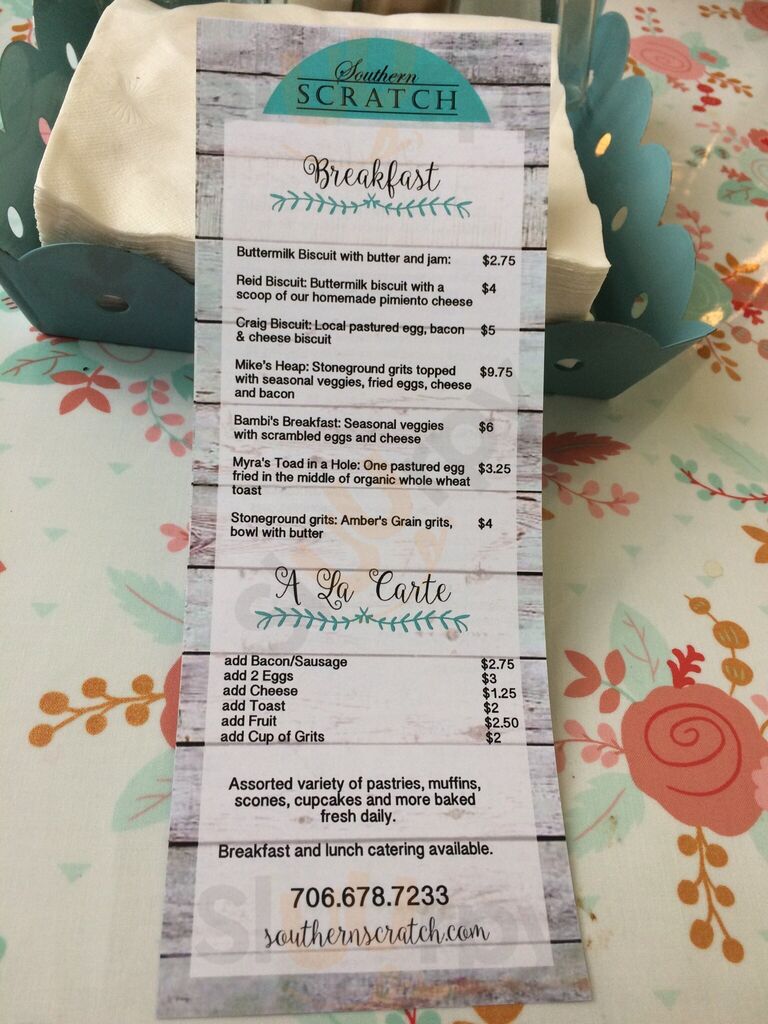 Southern
SCRATCH
Breakfast
Buttermilk Biscuit with butter and jam: $2.75
Reid Biscuit: Buttermilk biscuit with a $4
scoop of our homemade pimiento cheese
Craig Biscuit: Local pastured egg, bacon $5
& cheese biscuit
Mike's Heap: Stoneground grits topped $9.75
with seasonal veggies, fried eggs, cheese
and bacon
Bambi's Breakfast: Seasonal veggies $6
with scrambled eggs and cheese
Myra's Toad in a Hole: One pastured egg $3.25
fried in the middle of organic whole wheat
toast
Stoneground grits: Amber's Grain grits, $4
bowl with butter
A La Carte
add Bacon/Sausage $2.75
add 2 Eggs $3
add Cheese $1.25
add Toast $2
add Fruit $2.50
add Cup of Grits $2
Assorted variety of pastries, muffins,
scones, cupcakes and more baked
fresh daily.
Breakfast and lunch catering available.
706.678.7233
southernscratch.com